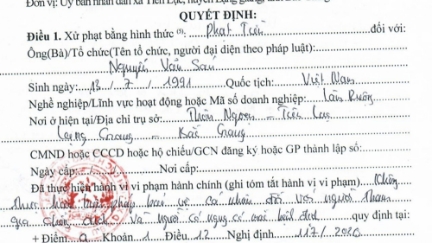 Đơn vị: Ủy ban nhân dân xã Tiên Lục, huyện Lạng Giang
QUYẾT ĐỊNH:
Điều 1. Xử phạt bằng hình thức (3): Phạt Tiền đối với:
Ông(Bà)/Tổ chức(Tên tổ chức, người đại diện theo pháp luật):
Nguyễn Văn Sáu
Sinh ngày: 13 / 7 / 1991 Quốc tịch: Việt Nam
Nghề nghiệp/Lĩnh vực hoạt động hoặc Mã số doanh nghiệp: Làm Ruộng
Nơi ở hiện tại/Địa chỉ trụ sở: Tiên Lục
Lạng Giang - Bắc Giang
CMND hoặc CCCD hoặc hộ chiếu/GCN đăng ký hoặc GP thành lập số:
Ngày cấp: Nơi cấp:
Đã thực hiện hành vi vi phạm hành chính (ghi tóm tắt hành vi vi phạm). Không
Thực hiện biện pháp bảo vệ cá nhân đối với người Tham
gia và người có nguy cơ quy định tại:
+ Điểm a Khoản 1 Điều 12 Nghị định 117/2020